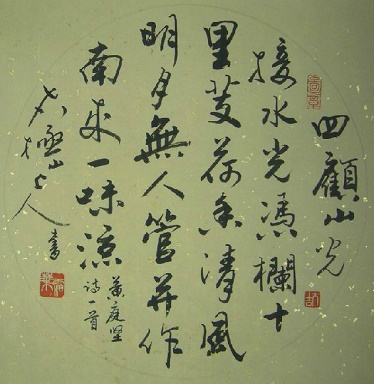 四顧山光
接水光馮欄十
里芰荷香清風
明月無人管并作
南来一味涼
黄庭坚
诗一首
山人書